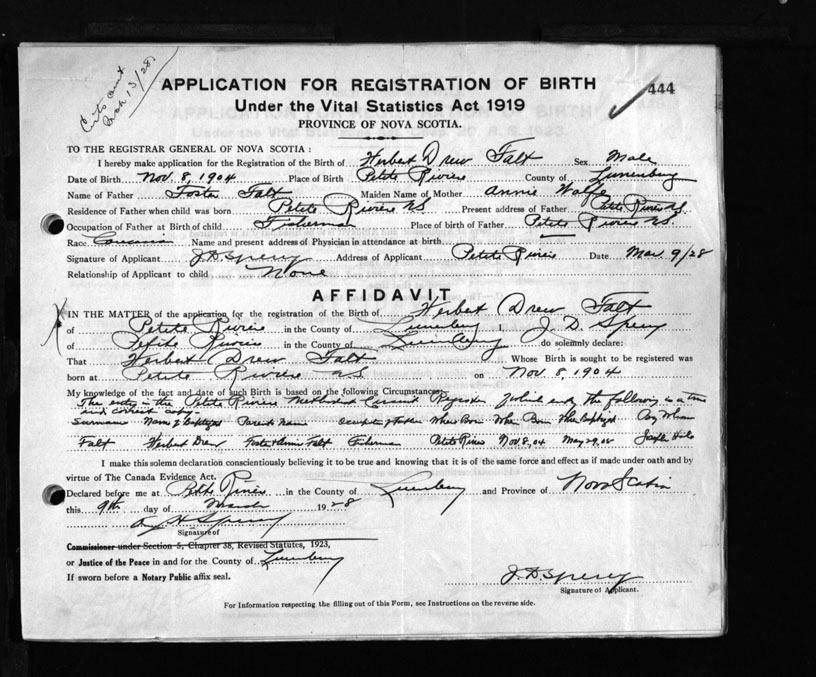 444
APPLICATION FOR REGISTRATION OF BIRTH
Under the Vital Statistics Act 1919
PROVINCE OF NOVA SCOTIA.
TO THE REGISTRAR GENERAL OF NOVA SCOTIA:
I hereby make application for the Registration of the Birth of Herbert Drew Falt Sex Male
Date of Birth Nov. 8, 1904 Place of Birth Petite Riviere County of Lunenburg
Name of Father Foster Falt Maiden Name of Mother Annie Wolfe
Residence of Father when child was born Petite Riviere NS Present address of Father Petite Riviere NS.
Occupation of Father at Birth of child Fisherman Place of birth of Father Petite Riviere NS.
Race Name and present address of Physician in attendance at birth
Signature of Applicant J.D. Sperry Address of Applicant Petite Riviere Date Mar. 9/28
Relationship of Applicant to child None
AFFIDAVIT
IN THE MATTER of the application for the registration of the Birth of Herbert Drew Falt
of Petite Riviere in the County of Lunenburg I, J. D. Sperry
of Petite Riviere in the County of Lunenburg do solemnly declare:
That Herbert Drew Falt Whose Birth is sought to be registered was
born at Petite Riviere NS on Nov. 8, 1904
My knowledge of the fact and date of such Birth is based on the following Circumstances:
The entry in the Petite Riviere Methodist Register of which entry the following is a true
and correct copy.
Surname Name of Baptized Parents Name Occupation of Father Where Born When Born When Baptized By Whom
Falt Herbert Drew Foster & Annie Falt Fisherman Petite Riviere Nov 8, 04 May 29, Joseph
I make this solemn declaration conscientiously believing it to be true and knowing that it is of the same force and effect as if made under oath and by
virtue of The Canada Evidence Act.
Declared before me at Petite Riviere in the County of Lunenburg and Province of Nova Scotia
this 9th day of March 1928
Sperry
Signature of
Commissioner under Section 5, Chapter 38, Revised Statutes, 1923,
or Justice of the Peace in and for the County of Lunenburg
If sworn before a Notary Public affix seal.
J. D. Sperry
Signature of Applicant.
For Information respecting the filling out of this Form, see Instructions on the reverse side.